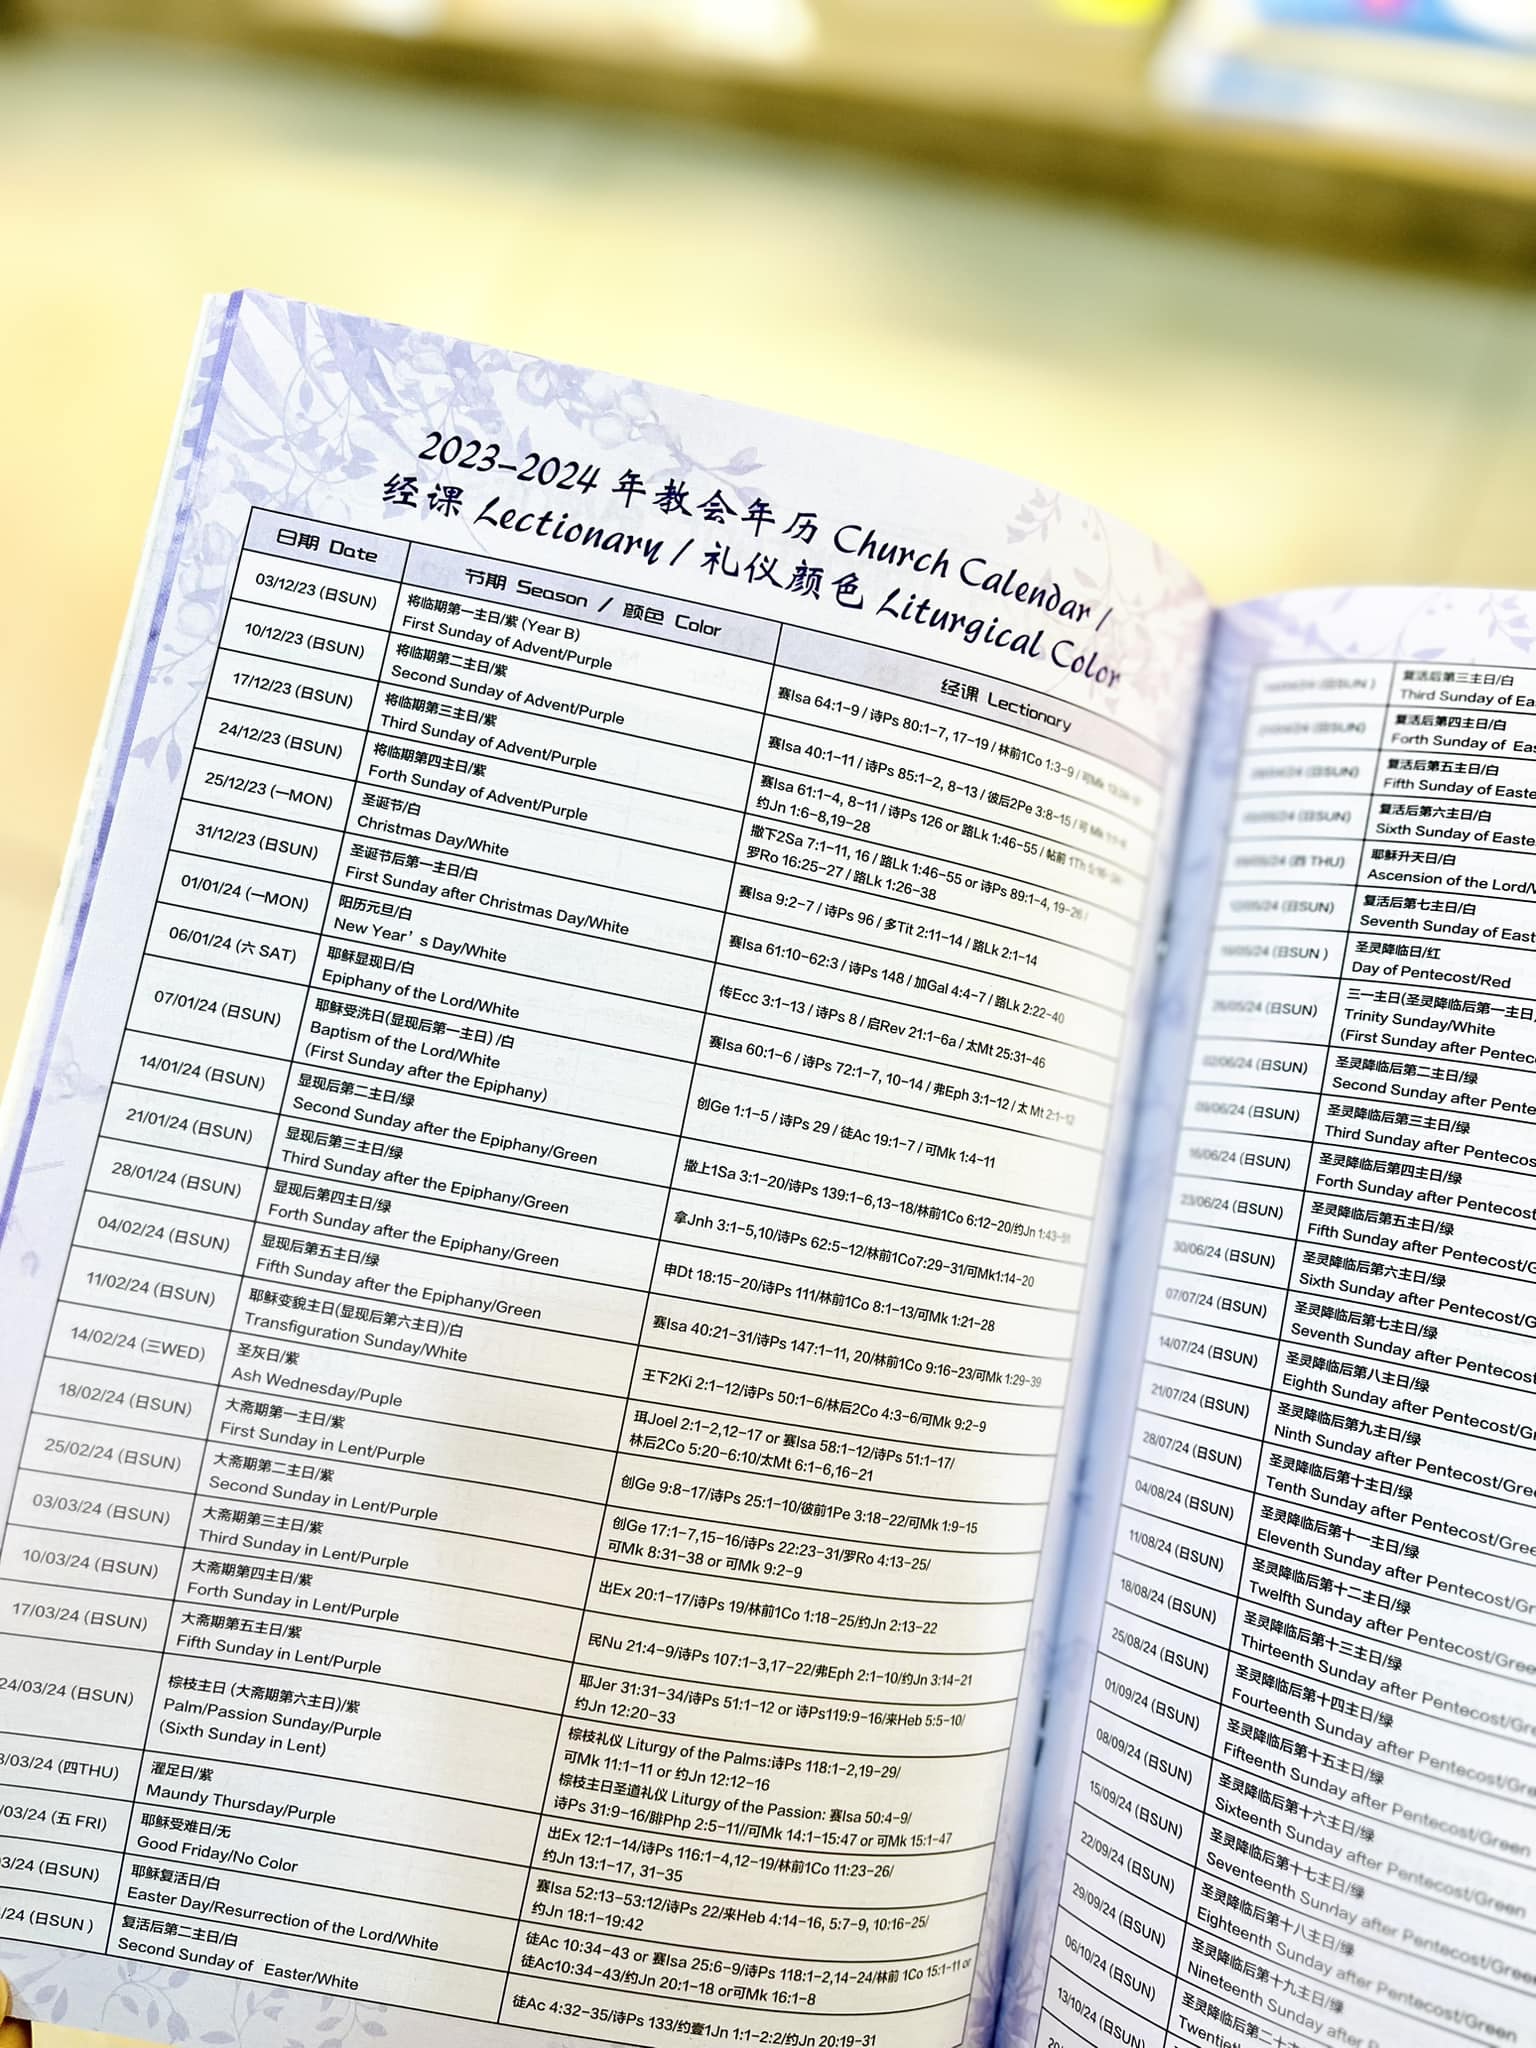 2023-2024 年教会年历 Church Calendar /
经课 Lectionary / 礼仪颜色 Liturgical Color
日期 Date
节期 Season / 颜色 Color
经课 Lectionary
03/12/23 (日SUN)
将临期第一主日/紫 (Year B)
First Sunday of Advent/Purple
赛Isa 64:1-9 / 诗Ps 80:1-7, 17-19 / 林前1Co 1:3-9 / 可Mk
10/12/23 (日SUN)
将临期第二主日/紫
Second Sunday of Advent/Purple
赛Isa 40:1-11 / 诗Ps 85:1-2, 8-13 / 彼后2Pe 3:8-15 / 可Mk
17/12/23 (日SUN)
将临期第三主日/紫
Third Sunday of Advent/Purple
赛Isa 61:1-4, 8-11 / 诗Ps 126 or 路Lk 1:46-55 / 帖前 1Th
约Jn 1:6-8,19-28
24/12/23 (日SUN)
将临期第四主日/紫
Forth Sunday of Advent/Purple
撒下2Sa 7:1-11, 16 / 路Lk 1:46-55 or 诗Ps 89:1-4, 19-26 /
罗Ro 16:25-27 / 路Lk 1:26-38
25/12/23 (一MON)
圣诞节/白
Christmas Day/White
赛Isa 9:2-7 / 诗Ps 96 / 多Tit 2:11-14 / 路Lk 2:1-14
31/12/23 (日SUN)
圣诞节后第一主日/白
First Sunday after Christmas Day/White
赛Isa 61:10-62:3 / 诗Ps 148 / 加Gal 4:4-7 / 路Lk 2:22-40
01/01/24 (一MON)
阳历元旦/白
New Year’s Day/White
传Ecc 3:1-13 / 诗Ps 8 / 启Rev 21:1-6a / 太Mt 25:31-46
06/01/24 (六 SAT)
耶稣显现日/白
Epiphany of the Lord/White
赛Isa 60:1-6 / 诗Ps 72:1-7, 10-14 / 弗Eph 3:1-12 / 太 Mt 2:1-12
07/01/24 (日SUN)
耶稣受洗日(显现后第一主日) /白
Baptism of the Lord/White
(First Sunday after the Epiphany)
创Ge 1:1-5 / 诗Ps 29 / 徒Ac 19:1-7 / 可Mk 1:4-11
14/01/24 (日SUN)
显现后第二主日/绿
Second Sunday after the Epiphany/Green
撒上1Sa 3:1-20/诗Ps 139:1-6,13-18/林前1Co 6:12-20/约Jn 1:43-51
21/01/24 (日SUN)
显现后第三主日/绿
Third Sunday after the Epiphany/Green
拿Jnh 3:1-5,10/诗Ps 62:5-12/林前1Co7:29-31/可Mk1:14-20
28/01/24 (日SUN)
显现后第四主日/绿
Forth Sunday after the Epiphany/Green
申Dt 18:15-20/诗Ps 111/林前1Co 8:1-13/可Mk 1:21-28
04/02/24 (日SUN)
显现后第五主日/绿
Fifth Sunday after the Epiphany/Green
赛Isa 40:21-31/诗Ps 147:1-11, 20/林前1Co 9:16-23/可Mk 1:29-39
11/02/24 (日SUN)
耶稣变貌主日(显现后第六主日)/白
Transfiguration Sunday/White
王下2Ki 2:1-12/诗Ps 50:1-6/林后2Co 4:3-6/可Mk 9:2-9
14/02/24 (三WED)
圣灰日/紫
Ash Wednesday/Puple
珥Joel 2:1-2,12-17 or 赛Isa 58:1-12/诗Ps 51:1-17/
林后2Co 5:20-6:10/太Mt 6:1-6,16-21
18/02/24 (日SUN)
大斋期第一主日/紫
First Sunday in Lent/Purple
创Ge 9:8-17/诗Ps 25:1-10/彼前1Pe 3:18-22/可Mk 1:9-15
25/02/24 (日SUN)
大斋期第二主日/紫
Second Sunday in Lent/Purple
创Ge 17:1-7,15-16/诗Ps 22:23-31/罗Ro 4:13-25/
可Mk 8:31-38 or 可Mk 9:2-9
03/03/24 (日SUN)
大斋期第三主日/紫
Third Sunday in Lent/Purple
出Ex 20:1-17/诗Ps 19/林前1Co 1:18-25/约Jn 2:13-22
10/03/24 (日SUN)
大斋期第四主日/紫
Forth Sunday in Lent/Purple
民Nu 21:4-9/诗Ps 107:1-3,17-22/弗Eph 2:1-10/约Jn 3:14-21
17/03/24 (日SUN)
大斋期第五主日/紫
Fifth Sunday in Lent/Purple
耶Jer 31:31-34/诗Ps 51:1-12 or 诗Ps119:9-16/来Heb 5:5-10/
约Jn 12:20-33
24/03/24 (日SUN)
棕枝主日 (大斋期第六主日)/紫
Palm/Passion Sunday/Purple
(Sixth Sunday in Lent)
棕枝礼仪 Liturgy of the Palms:诗Ps 118:1-2,19-29/
可Mk 11:1-11 or 约Jn 12:12-16
棕枝主日圣道礼仪 Liturgy of the Passion: 赛Isa 50:4-9/
诗Ps 31:9-16/腓Php 2:5-11//可Mk 14:1-15:47 or 可Mk 15:1-47
/03/24 (四THU)
濯足日/紫
Maundy Thursday/Purple
出Ex 12:1-14/诗Ps 116:1-4,12-19/林前1Co 11:23-26/
约Jn 13:1-17, 31-35
/03/24 (五 FRI)
耶稣受难日/无
Good Friday/No Color
赛Isa 52:13-53:12/诗Ps 22/来Heb 4:14-16, 5:7-9, 10:16-25/
约Jn 18:1-19:42
3/24 (日SUN)
耶稣复活日/白
Easter Day/Resurrection of the Lord/White
徒Ac 10:34-43 or 赛Isa 25:6-9/诗Ps 118:1-2,14-24/林前 1Co 15:1-11 or
徒Ac10:34-43/约Jn 20:1-18 or可Mk 16:1-8
/24 (日SUN )
复活后第二主日/白
Second Sunday of Easter/White
徒Ac 4:32-35/诗Ps 133/约壹1Jn 1:1-2:2/约Jn 20:19-31
复活后第三主日/白
Third Sunday of Ea
复活后第四主日/白
Forth Sunday of Eas
复活后第五主日/白
Fifth Sunday of Easte
复活后第六主日/白
Sixth Sunday of Easte
(四 THU)
耶稣升天日/白
Ascension of the Lord/
(日SUN)
复活后第七主日/白
Seventh Sunday of East
19/05/24 (日SUN )
圣灵降临日/红
Day of Pentecost/Red
26/05/24 (日SUN)
三一主日(圣灵降临后第一主日
Trinity Sunday/White
(First Sunday after Pentec
02/06/24 (日SUN)
圣灵降临后第二主日/绿
Second Sunday after Pente
09/06/24 (日SUN)
圣灵降临后第三主日/绿
Third Sunday after Penteco
16/06/24 (日SUN)
圣灵降临后第四主日/绿
Forth Sunday after Pentecost
23/06/24 (日SUN)
圣灵降临后第五主日/绿
Fifth Sunday after Pentecost/
30/06/24 (日SUN)
圣灵降临后第六主日/绿
Sixth Sunday after Pentecost/G
07/07/24 (日SUN)
圣灵降临后第七主日/绿
Seventh Sunday after Pentecost
14/07/24 (日SUN)
圣灵降临后第八主日/绿
Eighth Sunday after Pentecost/Gr
21/07/24 (日SUN)
圣灵降临后第九主日/绿
Ninth Sunday after Pentecost/Gre
28/07/24 (日SUN)
圣灵降临后第十主日/绿
Tenth Sunday after Pentecost/Gre
04/08/24 (日SUN)
圣灵降临后第十一主日/绿
Eleventh Sunday after Pentecost/Gree
11/08/24 (日SUN)
圣灵降临后第十二主日/绿
Twelfth Sunday after Pentecost/Green
18/08/24 (日SUN)
圣灵降临后第十三主日/绿
Thirteenth Sunday after Pentecost/Gre
25/08/24 (日SUN)
圣灵降临后第十四主日/绿
Fourteenth Sunday after Pentecost/Gre
01/09/24 (日SUN)
圣灵降临后第十五主日/绿
Fifteenth Sunday after Pentecost/Green
08/09/24 (日SUN)
圣灵降临后第十六主日/绿
Sixteenth Sunday after Pentecost/Green
15/09/24 (日SUN)
圣灵降临后第十七主日/绿
Seventeenth Sunday after Pentecost/Green
22/09/24 (日SUN)
圣灵降临后第十八主日/绿
Eighteenth Sunday after Pentecost/Green
29/09/24 (日SUN)
圣灵降临后第十九主日/绿
Nineteenth Sunday after Pentecost/Green
06/10/24 (日SUN)
圣灵降临后第二十主
Twentiet
13/10/24 (日SUN)